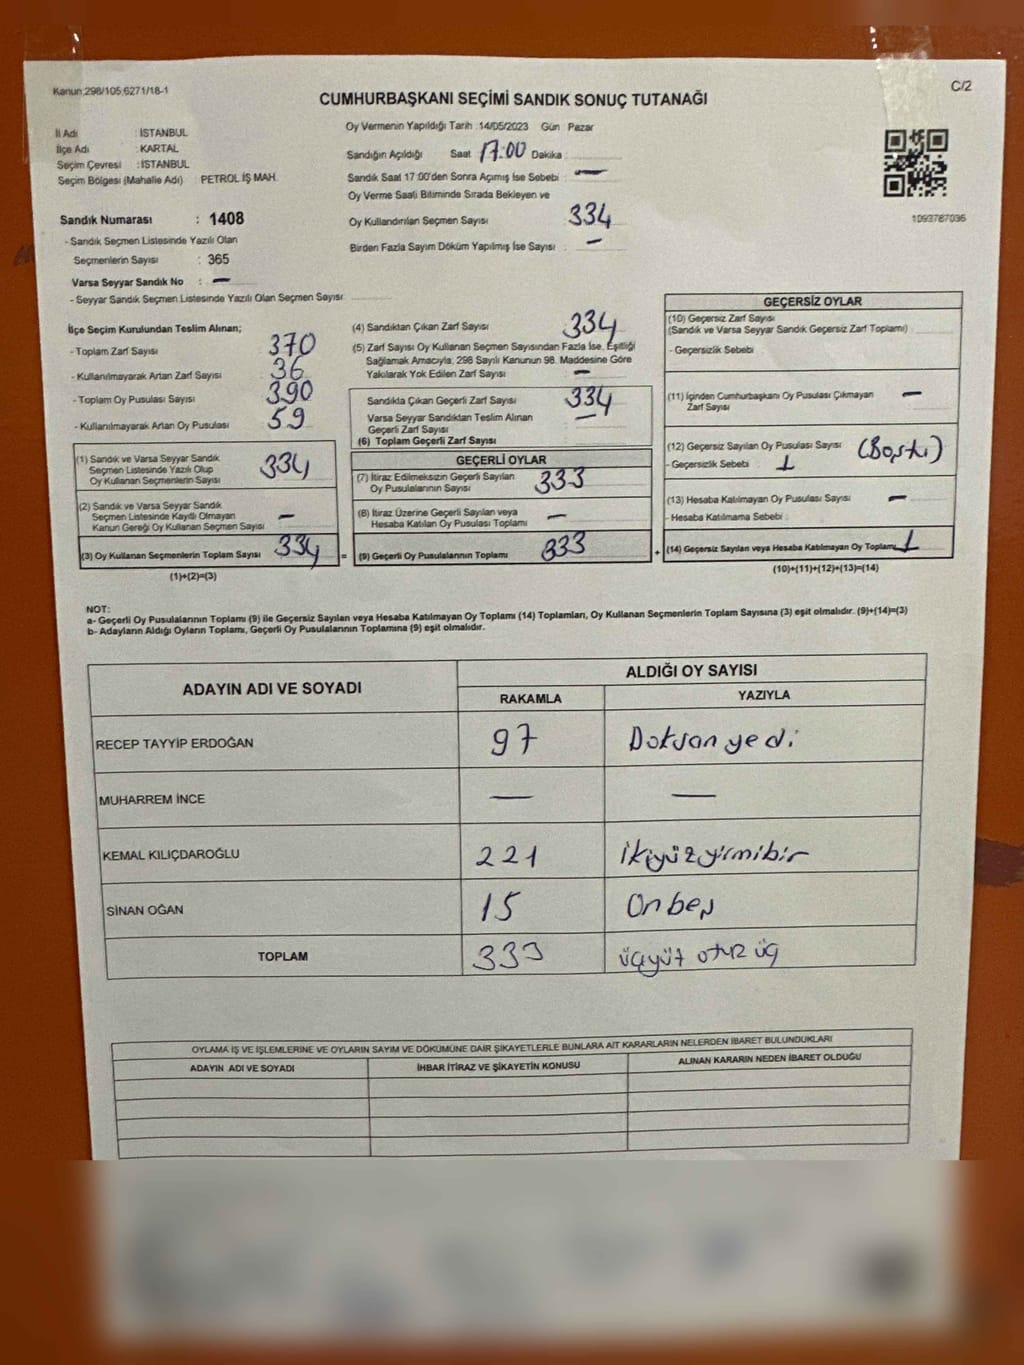 Kanun:298/105;6271/18-1
C/2
CUMHURBAŞKANI SEÇİMİ SANDIK SONUÇ TUTANAĞI
İl Adı : İSTANBUL
İlçe Adı : KARTAL
Seçim Çevresi : İSTANBUL
Seçim Bölgesi (Mahalle Adı) : PETROL İŞ MAH.
Sandık Numarası : 1408
- Sandık Seçmen Listesinde Yazılı Olan
Seçmenlerin Sayısı : 365
Varsa Seyyar Sandık No : —
- Seyyar Sandık Seçmen Listesinde Yazılı Olan Seçmen Sayısı
Oy Vermenin Yapıldığı Tarih :14/05/2023 Gün Pazar
Sandığın Açıldığı Saat 17:00 Dakika
Sandık Saat 17:00'den Sonra Açımış İse Sebebi : —
Oy Verme Saati Bitiminde Sırada Bekleyen ve
Oy Kullandırılan Seçmen Sayısı 334
Birden Fazla Sayım Döküm Yapılmış İse Sayısı : —
1093787036
İlçe Seçim Kurulundan Teslim Alınan;
- Toplam Zarf Sayısı 370
- Kullanılmayarak Artan Zarf Sayısı 36
- Toplam Oy Pusulası Sayısı 390
- Kullanılmayarak Artan Oy Pusulası 59
(1) Sandık ve Varsa Seyyar Sandık
Seçmen Listesinde Yazılı Olup
Oy Kullanan Seçmenlerin Sayısı 334
(2) Sandık ve Varsa Seyyar Sandık
Seçmen Listesinde Kayıtlı Olmayan
Kanun Gereği Oy Kullanan Seçmen Sayısı —
(3) Oy Kullanan Seçmenlerin Toplam Sayısı 334 =
(1)+(2)=(3)
(4) Sandıktan Çıkan Zarf Sayısı 334
(5) Zarf Sayısı Oy Kullanan Seçmen Sayısından Fazla İse, Eşitliği
Sağlamak Amacıyla, 298 Sayılı Kanunun 98. Maddesine Göre
Yakılarak Yok Edilen Zarf Sayısı —
Sandıkta Çıkan Geçerli Zarf Sayısı 334
Varsa Seyyar Sandıktan Teslim Alınan
Geçerli Zarf Sayısı —
(6) Toplam Geçerli Zarf Sayısı
GEÇERLİ OYLAR
(7) İtiraz Edilmeksizin Geçerli Sayılan
Oy Pusulalarının Sayısı 333
(8) İtiraz Üzerine Geçerli Sayılan veya
Hesaba Katılan Oy Pusulası Toplamı —
(9) Geçerli Oy Pusulalarının Toplamı 333 +
GEÇERSİZ OYLAR
(10) Geçersiz Zarf Sayısı
(Sandık ve Varsa Seyyar Sandık Geçersiz Zarf Toplamı)
- Geçersizlik Sebebi
(11) İçinden Cumhurbaşkanı Oy Pusulası Çıkmayan —
Zarf Sayısı
(12) Geçersiz Sayılan Oy Pusulası Sayısı (Boştu)
- Geçersizlik Sebebi : 1
(13) Hesaba Katılmayan Oy Pusulası Sayısı —
- Hesaba Katılmama Sebebi
(14) Geçersiz Sayılan veya Hesaba Katılmayan Oy Toplamı 1
(10)+(11)+(12)+(13)=(14)
NOT:
a- Geçerli Oy Pusulalarının Toplamı (9) ile Geçersiz Sayılan veya Hesaba Katılmayan Oy Toplamı (14) Toplamları, Oy Kullanan Seçmenlerin Toplam Sayısına (3) eşit olmalıdır. (9)+(14)=(3)
b- Adayların Aldığı Oyların Toplamı, Geçerli Oy Pusulalarının Toplamına (9) eşit olmalıdır.
ADAYIN ADI VE SOYADI
ALDIĞI OY SAYISI
RAKAMLA YAZIYLA
RECEP TAYYİP ERDOĞAN 97 Doksan yedi
MUHARREM İNCE — —
KEMAL KILIÇDAROĞLU 221 İkiyüzyirmibir
SİNAN OĞAN 15 Onbeş
TOPLAM 333 üçyüz otuz üç
OYLAMA İŞ VE İŞLEMLERİNE VE OYLARIN SAYIM VE DÖKÜMÜNE DAİR ŞİKAYETLERLE BUNLARA AİT KARARLARIN NELERDEN İBARET BULUNDUKLARI
ADAYIN ADI VE SOYADI İHBAR İTİRAZ VE ŞİKAYETİN KONUSU ALINAN KARARIN NEDEN İBARET OLDUĞU